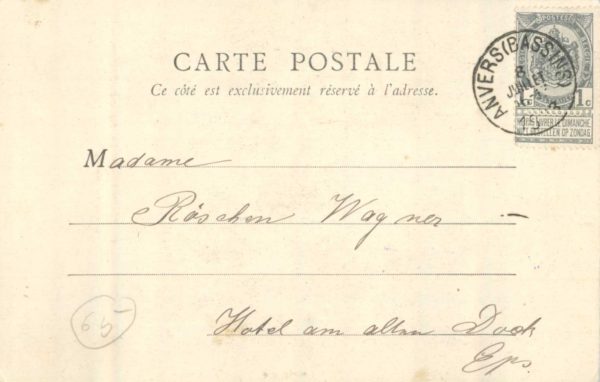 CARTE POSTALE
Ce côté est exclusivement réservé à l'adresse.
ANVERS (BASSINS)
8
JUILLET
POSTES
1c
NE PAS LIVRER LE DIMANCHE
NIET BESTELLEN OP ZONDAG
Madame
Röschen Wagner
Hotel am alten Dock
Eps.
65